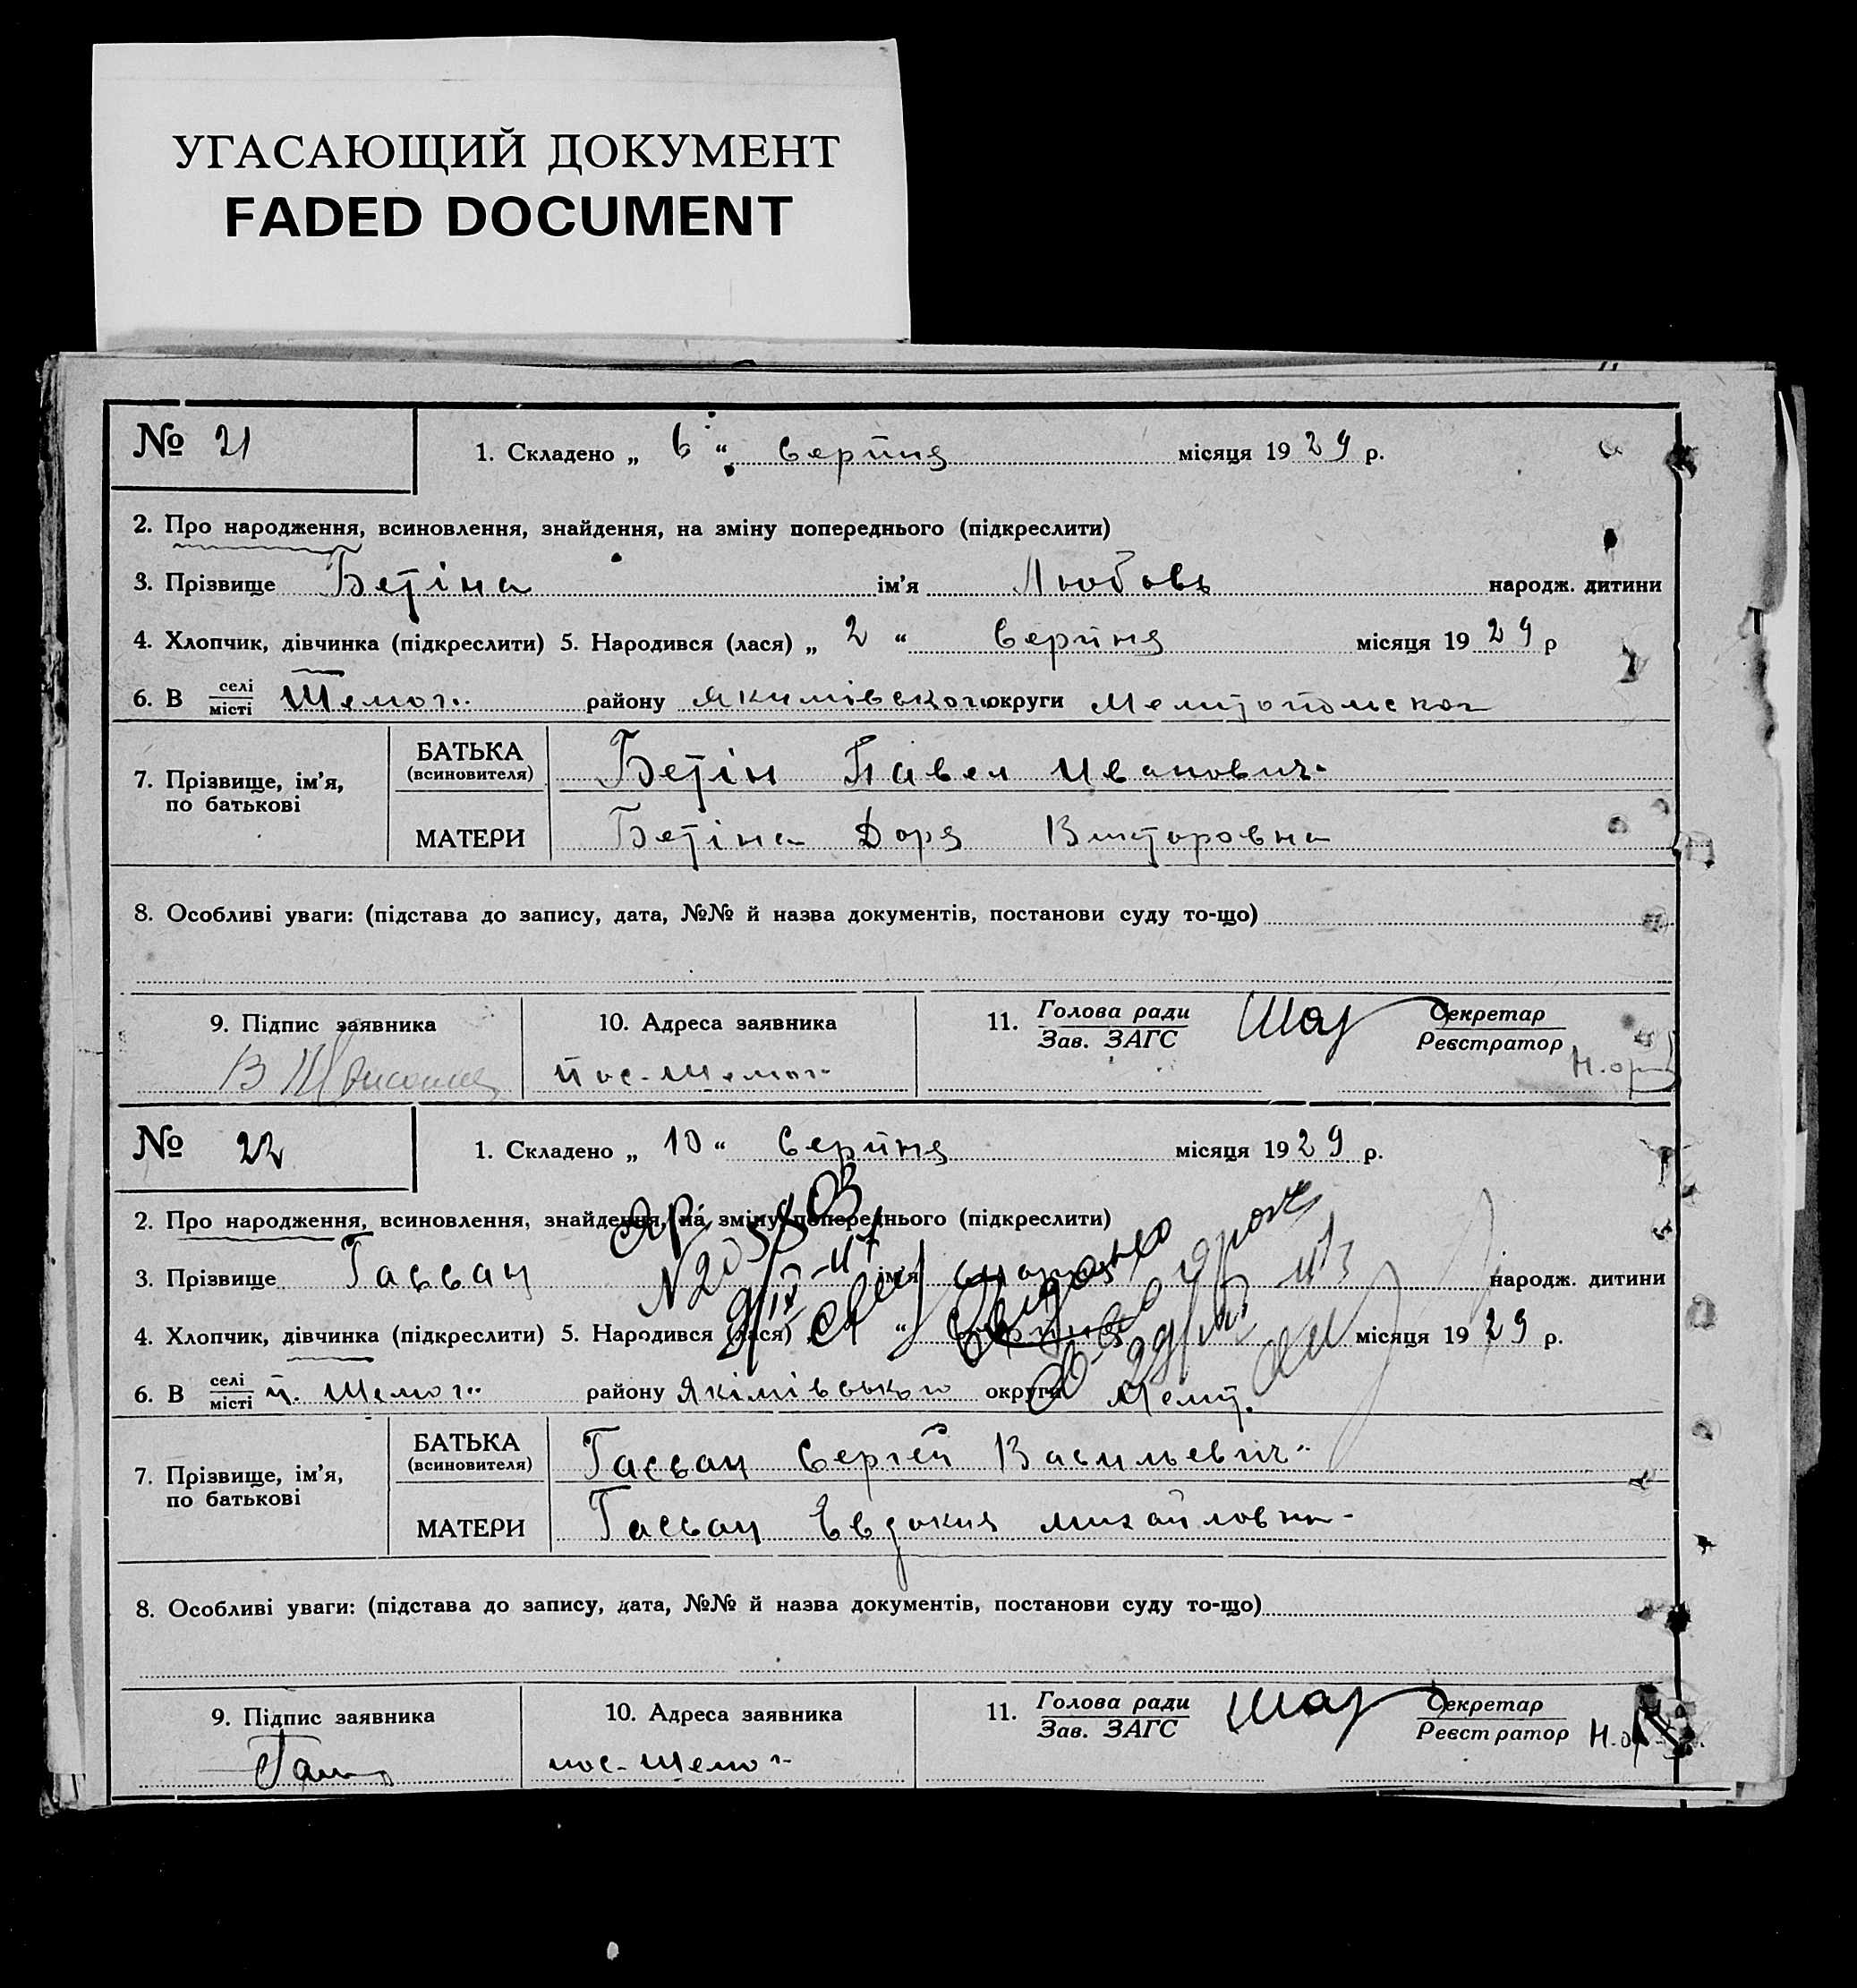 УГАСАЮЩИЙ ДОКУМЕНТ
FADED DOCUMENT
№ 21
1. Складено „ 6 “ Серпня місяця 1929 р.
2. Про народження, всиновлення, знайдення, на зміну попереднього (підкреслити)
3. Прізвище Бетіна ім’я Любовь народж. дитини
4. Хлопчик, дівчинка (підкреслити) 5. Народився (лася) „ 2 “ Серпня місяця 1929 р
6. В селі місті Шемот.. району Якимівського округи Мелитопольског
7. Прізвище, ім’я, по батькові
БАТЬКА (всиновителя) Бетін Павел Иванович
МАТЕРИ Бетіна Доря Викторовна
8. Особливі уваги: (підстава до запису, дата, №№ й назва документів, постанови суду то-що)
9. Підпис заявника
10. Адреса заявника
11. Голова ради Зав. ЗАГС
Секретар Реєстратор
пос. Шемот
№ 22
1. Складено „ 10 “ Серпня місяця 1929 р.
2. Про народження, всиновлення, знайдення, на зміну попереднього (підкреслити)
3. Прізвище Гассан ім’я народж. дитини
4. Хлопчик, дівчинка (підкреслити) 5. Народився (лася) “ місяця 1929 р.
6. В селі місті п. Шемот.. району Якімівського округи Мелит.
7. Прізвище, ім’я, по батькові
БАТЬКА (всиновителя) Гассан Сергей Васильевич
МАТЕРИ Гассан Евдокия Михайловна
8. Особливі уваги: (підстава до запису, дата, №№ й назва документів, постанови суду то-що)
9. Підпис заявника
10. Адреса заявника
11. Голова ради Зав. ЗАГС
Секретар Реєстратор
пос. Шемот